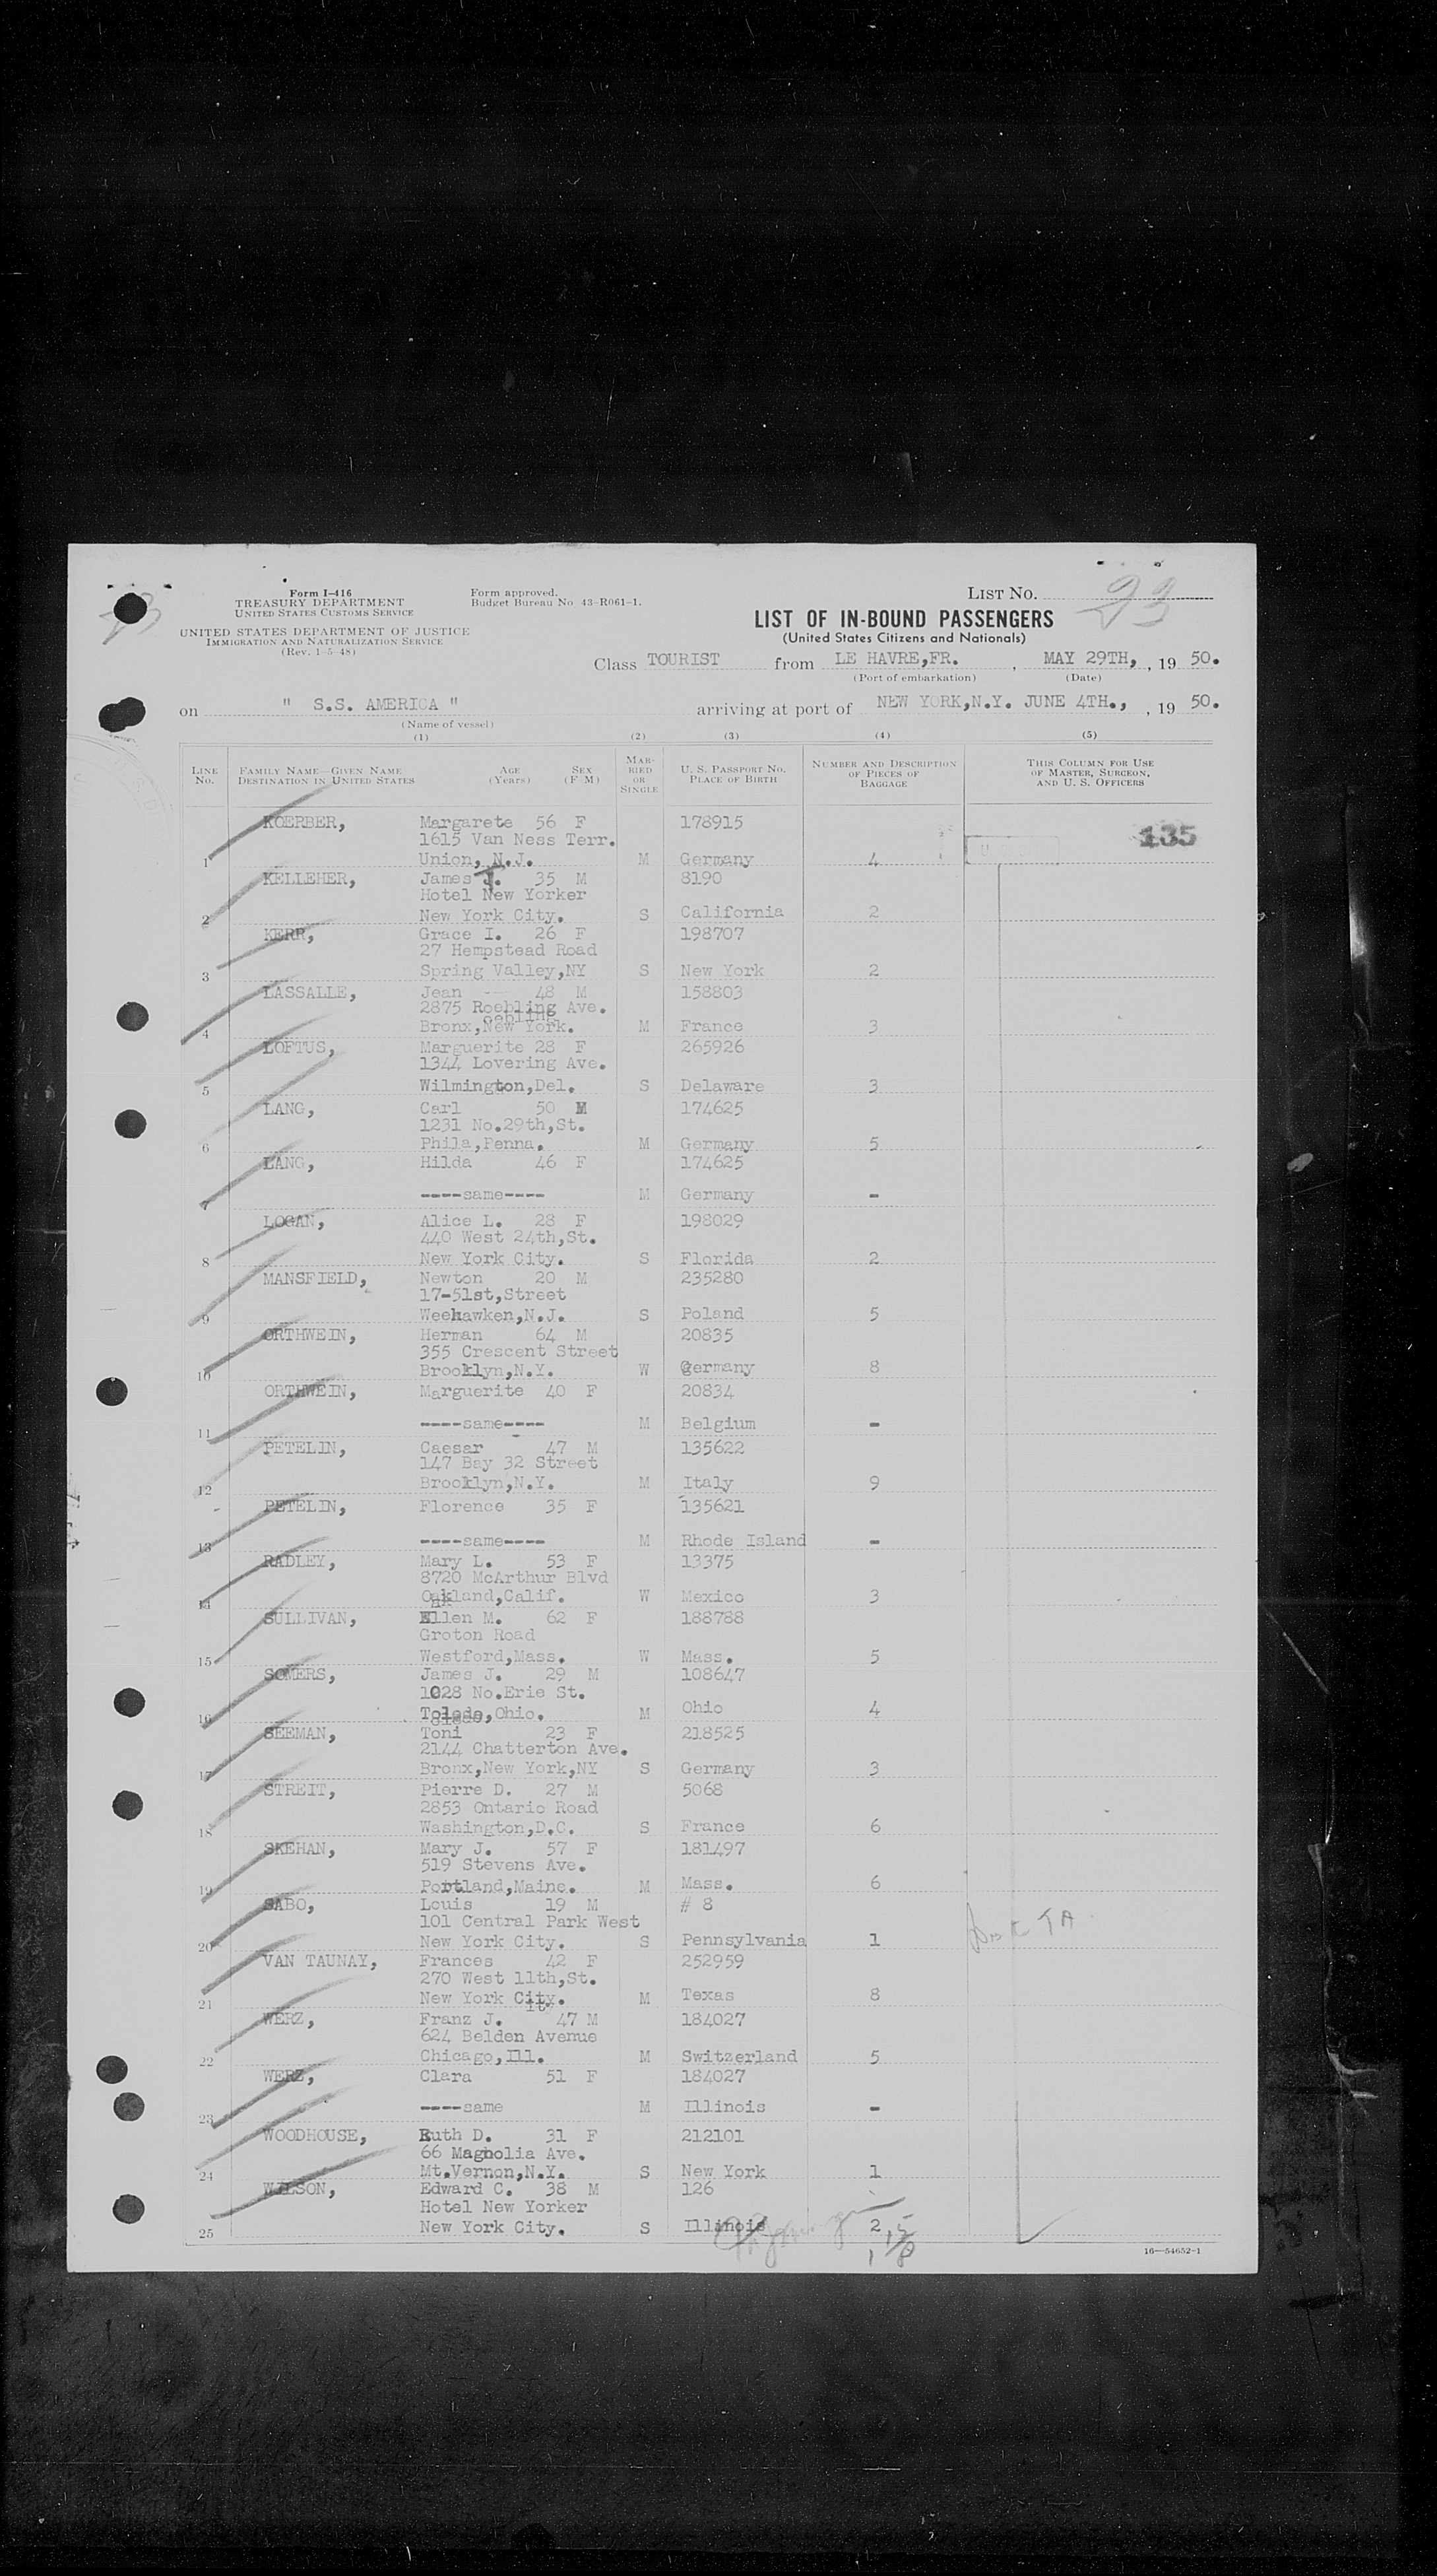 Form I-416
TREASURY DEPARTMENT
UNITED STATES CUSTOMS SERVICE
UNITED STATES DEPARTMENT OF JUSTICE
IMMIGRATION AND NATURALIZATION SERVICE
(Rev. 1-5-48)
Form approved.
Budget Bureau No 43-R061-1.
LIST NO. 23
LIST OF IN-BOUND PASSENGERS
(United States Citizens and Nationals)
Class TOURIST from LE HAVRE,FR. , MAY 29TH, , 19 50.
(Port of embarkation) (Date)
on " S.S. AMERICA " arriving at port of NEW YORK,N.Y. JUNE 4TH., , 19 50.
(Name of vessel)
(1) (2) (3) (4) (5)
LINE NO. FAMILY NAME—GIVEN NAME DESTINATION IN UNITED STATES AGE (Years) SEX (F M) MARRIED OR SINGLE U. S. PASSPORT NO. PLACE OF BIRTH NUMBER AND DESCRIPTION OF PIECES OF BAGGAGE THIS COLUMN FOR USE OF MASTER, SURGEON, AND U. S. OFFICERS
KOERBER, Margarete 56 F 178915 135
1615 Van Ness Terr.
1 Union, N.J. M Germany 4
KELLEHER, James J. 35 M 8190
Hotel New Yorker
2 New York City. S California 2
KERR, Grace I. 26 F 198707
27 Hempstead Road
3 Spring Valley,NY S New York 2
LASSALLE, Jean --- 48 M 158803
2875 Roebling Ave.
4 Bronx,New York. M France 3
LOFTUS, Marguerite 28 F 265926
1344 Lovering Ave.
5 Wilmington,Del. S Delaware 3
LANG, Carl 50 M 174625
1231 No.29th,St.
6 Phila,Penna. M Germany 5
LANG, Hilda 46 F 174625
7 ----same---- M Germany -
LOGAN, Alice L. 28 F 198029
440 West 24th,St.
8 New York City. S Florida 2
MANSFIELD, Newton 20 M 235280
17-51st,Street
9 Weehawken,N.J. S Poland 5
ORTHWEIN, Herman 64 M 20835
355 Crescent Street
10 Brooklyn,N.Y. W Germany 8
ORTHWEIN, Marguerite 40 F 20834
11 ----same---- M Belgium -
PETELIN, Caesar 47 M 135622
147 Bay 32 Street
12 Brooklyn,N.Y. M Italy 9
PETELIN, Florence 35 F 135621
13 ----same---- M Rhode Island -
RADLEY, Mary L. 53 F 13375
8720 McArthur Blvd
14 Oakland,Calif. W Mexico 3
SULLIVAN, Ellen M. 62 F 188788
Groton Road
15 Westford,Mass. W Mass. 5
SOMERS, James J. 29 M 108647
1028 No.Erie St.
16 Toledo,Ohio. M Ohio 4
SEEMAN, Toni 23 F 218525
2144 Chatterton Ave.
17 Bronx,New York,NY S Germany 3
STREIT, Pierre D. 27 M 5068
2853 Ontario Road
18 Washington,D.C. S France 6
SKEHAN, Mary J. 57 F 181497
519 Stevens Ave.
19 Portland,Maine. M Mass. 6
SABO, Louis 19 M # 8
101 Central Park West
20 New York City. S Pennsylvania 1
VAN TAUNAY, Frances 42 F 252959
270 West 11th,St.
21 New York City. M Texas 8
WERZ, Franz J. 47 M 184027
624 Belden Avenue
22 Chicago,Ill. M Switzerland 5
WERZ, Clara 51 F 184027
23 ----same M Illinois -
WOODHOUSE, Ruth D. 31 F 212101
66 Magnolia Ave.
24 Mt.Vernon,N.Y. S New York 1
WILSON, Edward C. 38 M 126
Hotel New Yorker
25 New York City. S Illinois 2
16—54652-1